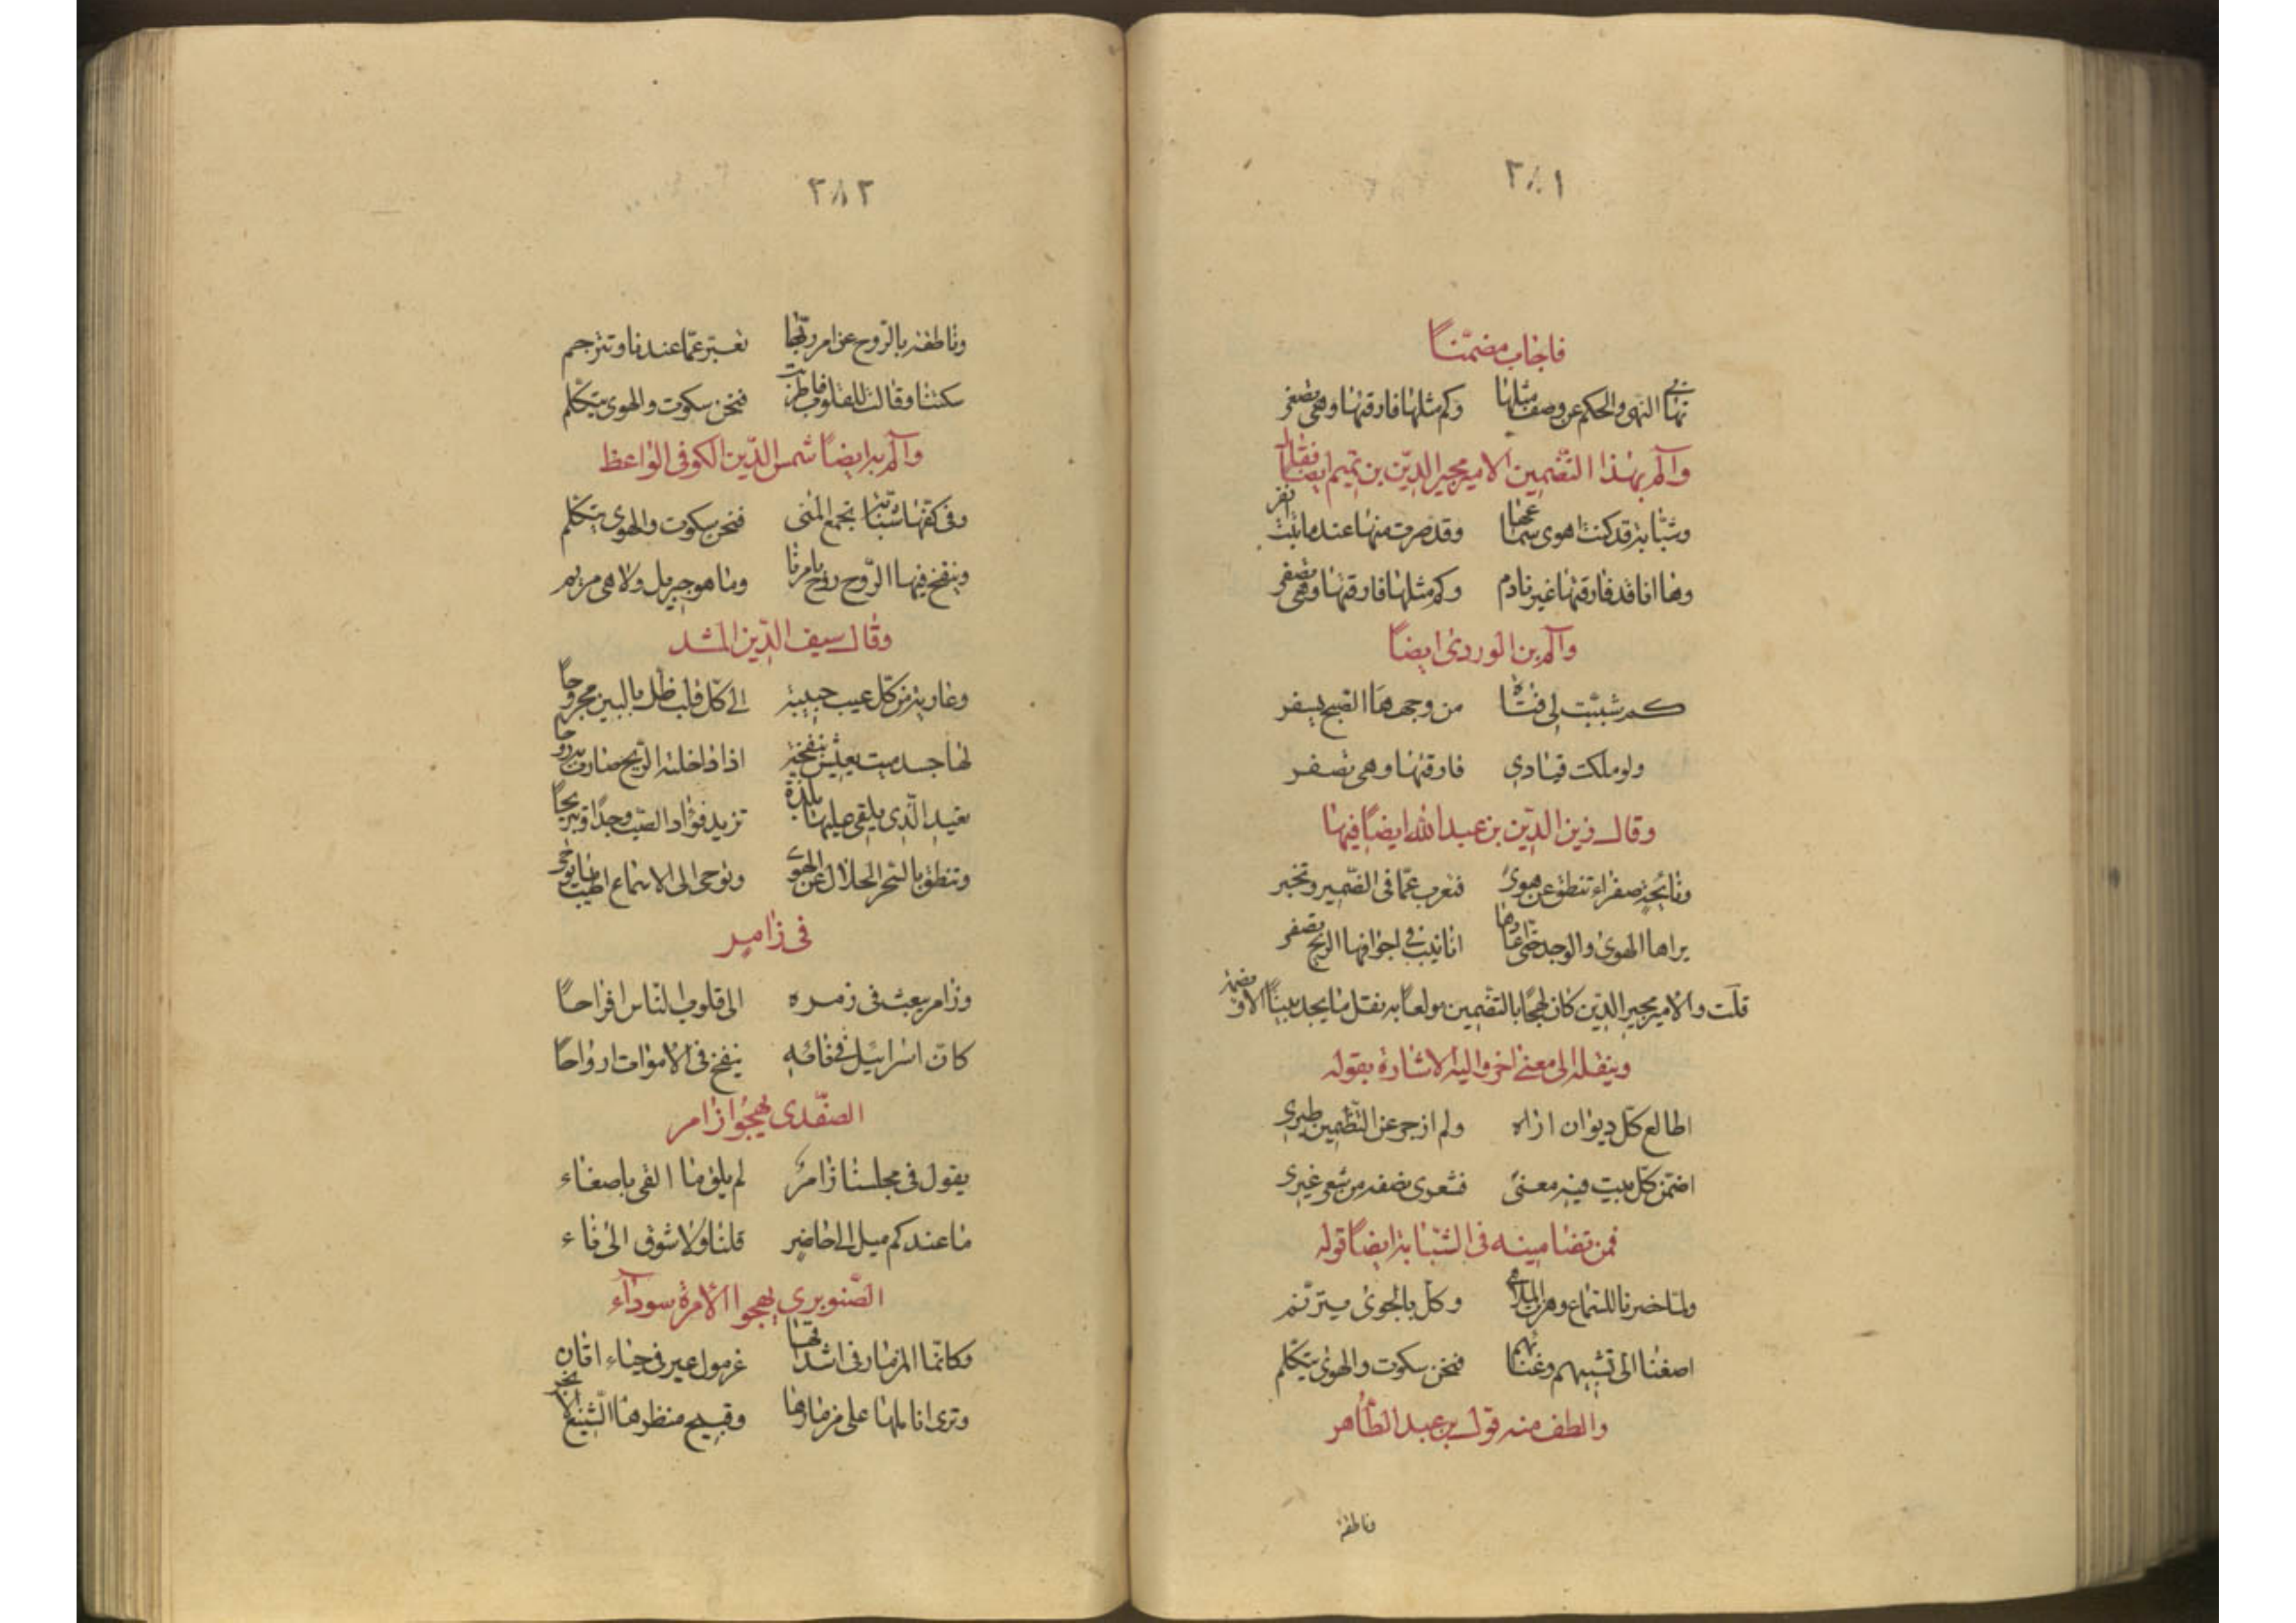 ٣٨١
فاجاب مضمنًا
نهاني النهى والحكم عن وصف مثلها وكم مثلها فارقتها وهي تصفر
والم بهذا التضمين الامير مجير الدين بن تميم ايضًا فقال
وشبابة قد كنت اهوى سماعها وقد صرت منها عند ما بنت انفر
وها انا قد فارقتها غير نادم وكم مثلها فارقتها وهي تصفر
والم بن الوردى ايضًا
كم شببت لي فتاة من وجهها الصبح يسفر
ولو ملكت قيادي فارقتها وهي تصفر
وقال زين الدين بن عبد الله ايضًا فيها
ونائحة صفراء تنطق عن هوى فتعرب عمّا فى الضمير وتخبر
براها الهوى والوجد حتى اعادها انابيب في اجوافها الريح تصفر
قلت والامير مجير الدين كان لهجًا بالتضمين مولعًا به نقل ما يجد بيتًا الا وضمنه
وينقله الى معنى اخر واليه الاشارة بقوله
اطالع كل ديوان اراه ولم ازجر عن التضمين طيري
اضمن كل بيت فيه معنى فشعرى نصفه من شعر غيري
فمن تضامينه فى الشبابة ايضًا قوله
ولما حضرنا للسماع وهزت الملاهى وكل بالجوى يترنم
اصغنا الى تشبيبهم وغنائهم فنحن سكوت والهوى يتكلم
والطف منه قول بن عبد الظاهر
وناطقة
٣٨٢
وناطقة بالروح عن امر ربها تعبر عمّا عندنا وتترجم
سكتنا وقالت للقلوب فاطربت فنحن سكوت والهوى يتكلم
والم به ايضًا شمس الدين الكوفى الواعظ
وفى كفها شبابة تجمع المنى فنحن سكوت والهوى يتكلم
وينفخ فيها الروح روح بامرنا وما هو جبريل ولا هى مريم
وقال سيف الدين المشد
وعارية من كل عيب حبيبة الى كل قلب ظل بالبين مجروحا
لها جسد ميت يعيش بنفخة اذا داخلته الريح صارت به روحا
تعيد الذي يلقى عليها بلذة تزيد فؤاد الصب وجدًا وتبريحًا
وتنطق بالسحر الحلال عن الهوى وتوحى الى الاسماع اطيب ما يوحى
فى زامر
وزامر يبعث فى زمره الى قلوب الناس افراحًا
كان اسرافيل في فائه ينفخ فى الاموات ارواحًا
الصفدى يهجوا زامر
يقول فى مجلسنا زامرٌ لم يلق ما القى باصغاء
ما عندكم ميل الى حاضر قلنا ولا شوق الى فاء
الصنوبري يهجوا الامرة سوداء
وكانما المزمار فى اشداقها غرمول عير فى حياء اتان
وترى اناملها على مزمارها وقبيح منظرها الشنيع